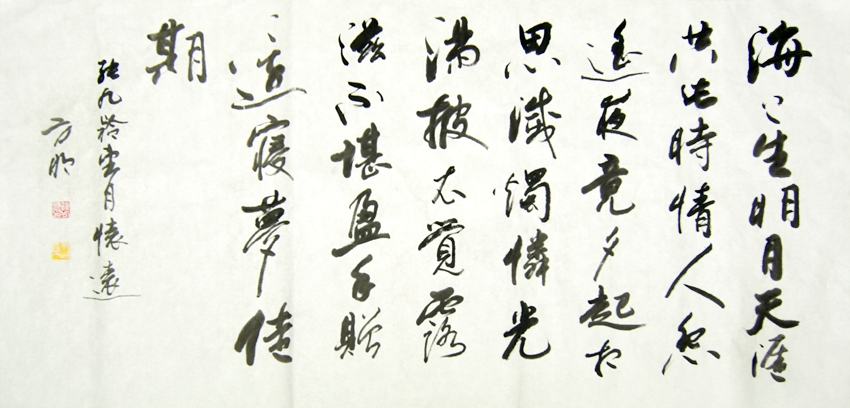 海上生明月天涯
共此時情人怨
遙夜竟夕起相
思滅燭憐光
滿披衣覺露
滋不堪盈手贈
還寢夢佳
期
張九齡望月懷遠
方